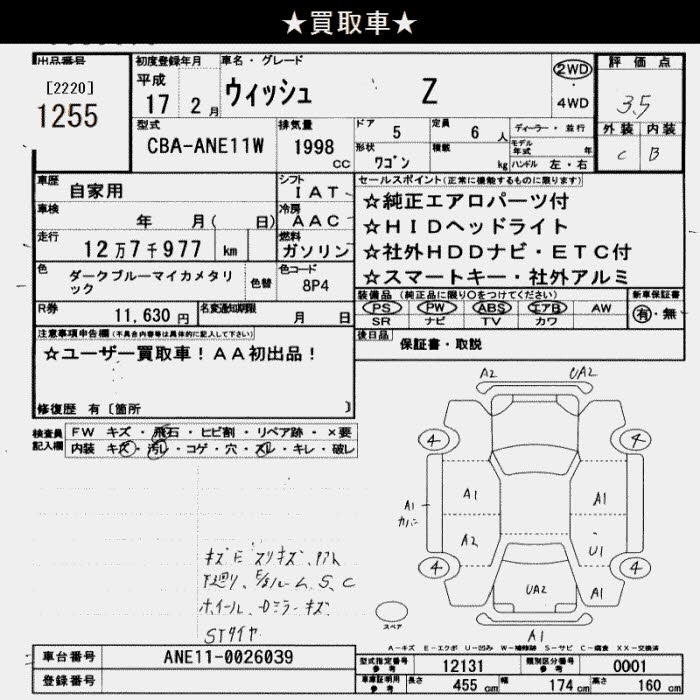 ★買取車★
出品番号
[2220]
1255
初度登録年月
平成
17 2 月
車名・グレード
ウィッシュ Z
2WD
4WD
評価点
3.5
外装 内装
C B
型式
CBA-ANE11W
排気量
1998 CC
ドア 5
定員 6 人
ディーラー・並行
形状 ワゴン
積載 kg
モデル年式 年
ハンドル 左・右
車歴 自家用
シフト IAT
車検 年 月( 日)
冷房 AAC
走行 12万7千977 km
燃料 ガソリン
色 ダークブルーマイカメタリック
色替
色コード 8P4
R券 11,630 円
名変通知期限 月 日
セールスポイント(正常に機能するものに限ります)
☆純正エアロパーツ付
☆HIDヘッドライト
☆社外HDDナビ・ETC付
☆スマートキー・社外アルミ
装備品 (純正品に限り○をつけてください)
PS PW ABS エアB AW
SR ナビ TV カワ
新車保証書
有・無
後日品 保証書・取説
注意事項申告欄(不具合内容等は具体的に記入して下さい)
☆ユーザー買取車!AA初出品!
修復歴 有〔箇所 〕
検査員記入欄
FW キズ・飛石・ヒビ割・リペア跡・×要
内装 キズ・汚レ・コゲ・穴・スレ・キレ・破レ
A2 UA2
4 4
A1 A1
A1
カバー
A2 U1
4 4
UA2 A1
スペア
A1
キズE スリキズ,
下廻り, E/ルーム S, C
ホイール・Dミラーキズ
STタイヤ
A-キズ E-エクボ U-凹み W-補修跡 S-サビ C-腐食 XX-交換済
車台番号 ANE11-0026039
登録番号
型式指定番号 参考 12131
類別区分番号 参考 0001
車庫証明用 参考 長さ 455 cm 幅 174 cm 高さ 160 cm